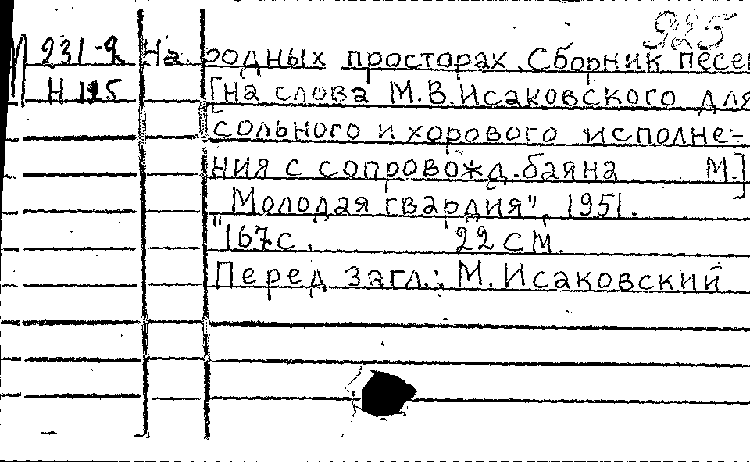 925
П 231-2 На родных просторах. Сборник песен
Н 115 [на слова М.В.Исаковского для
сольного и хорового исполне-
ния с сопровожд. баяна М.]
"Молодая гвардия", 1951.
167с. 22 см.
Перед загл.: М.Исаковский